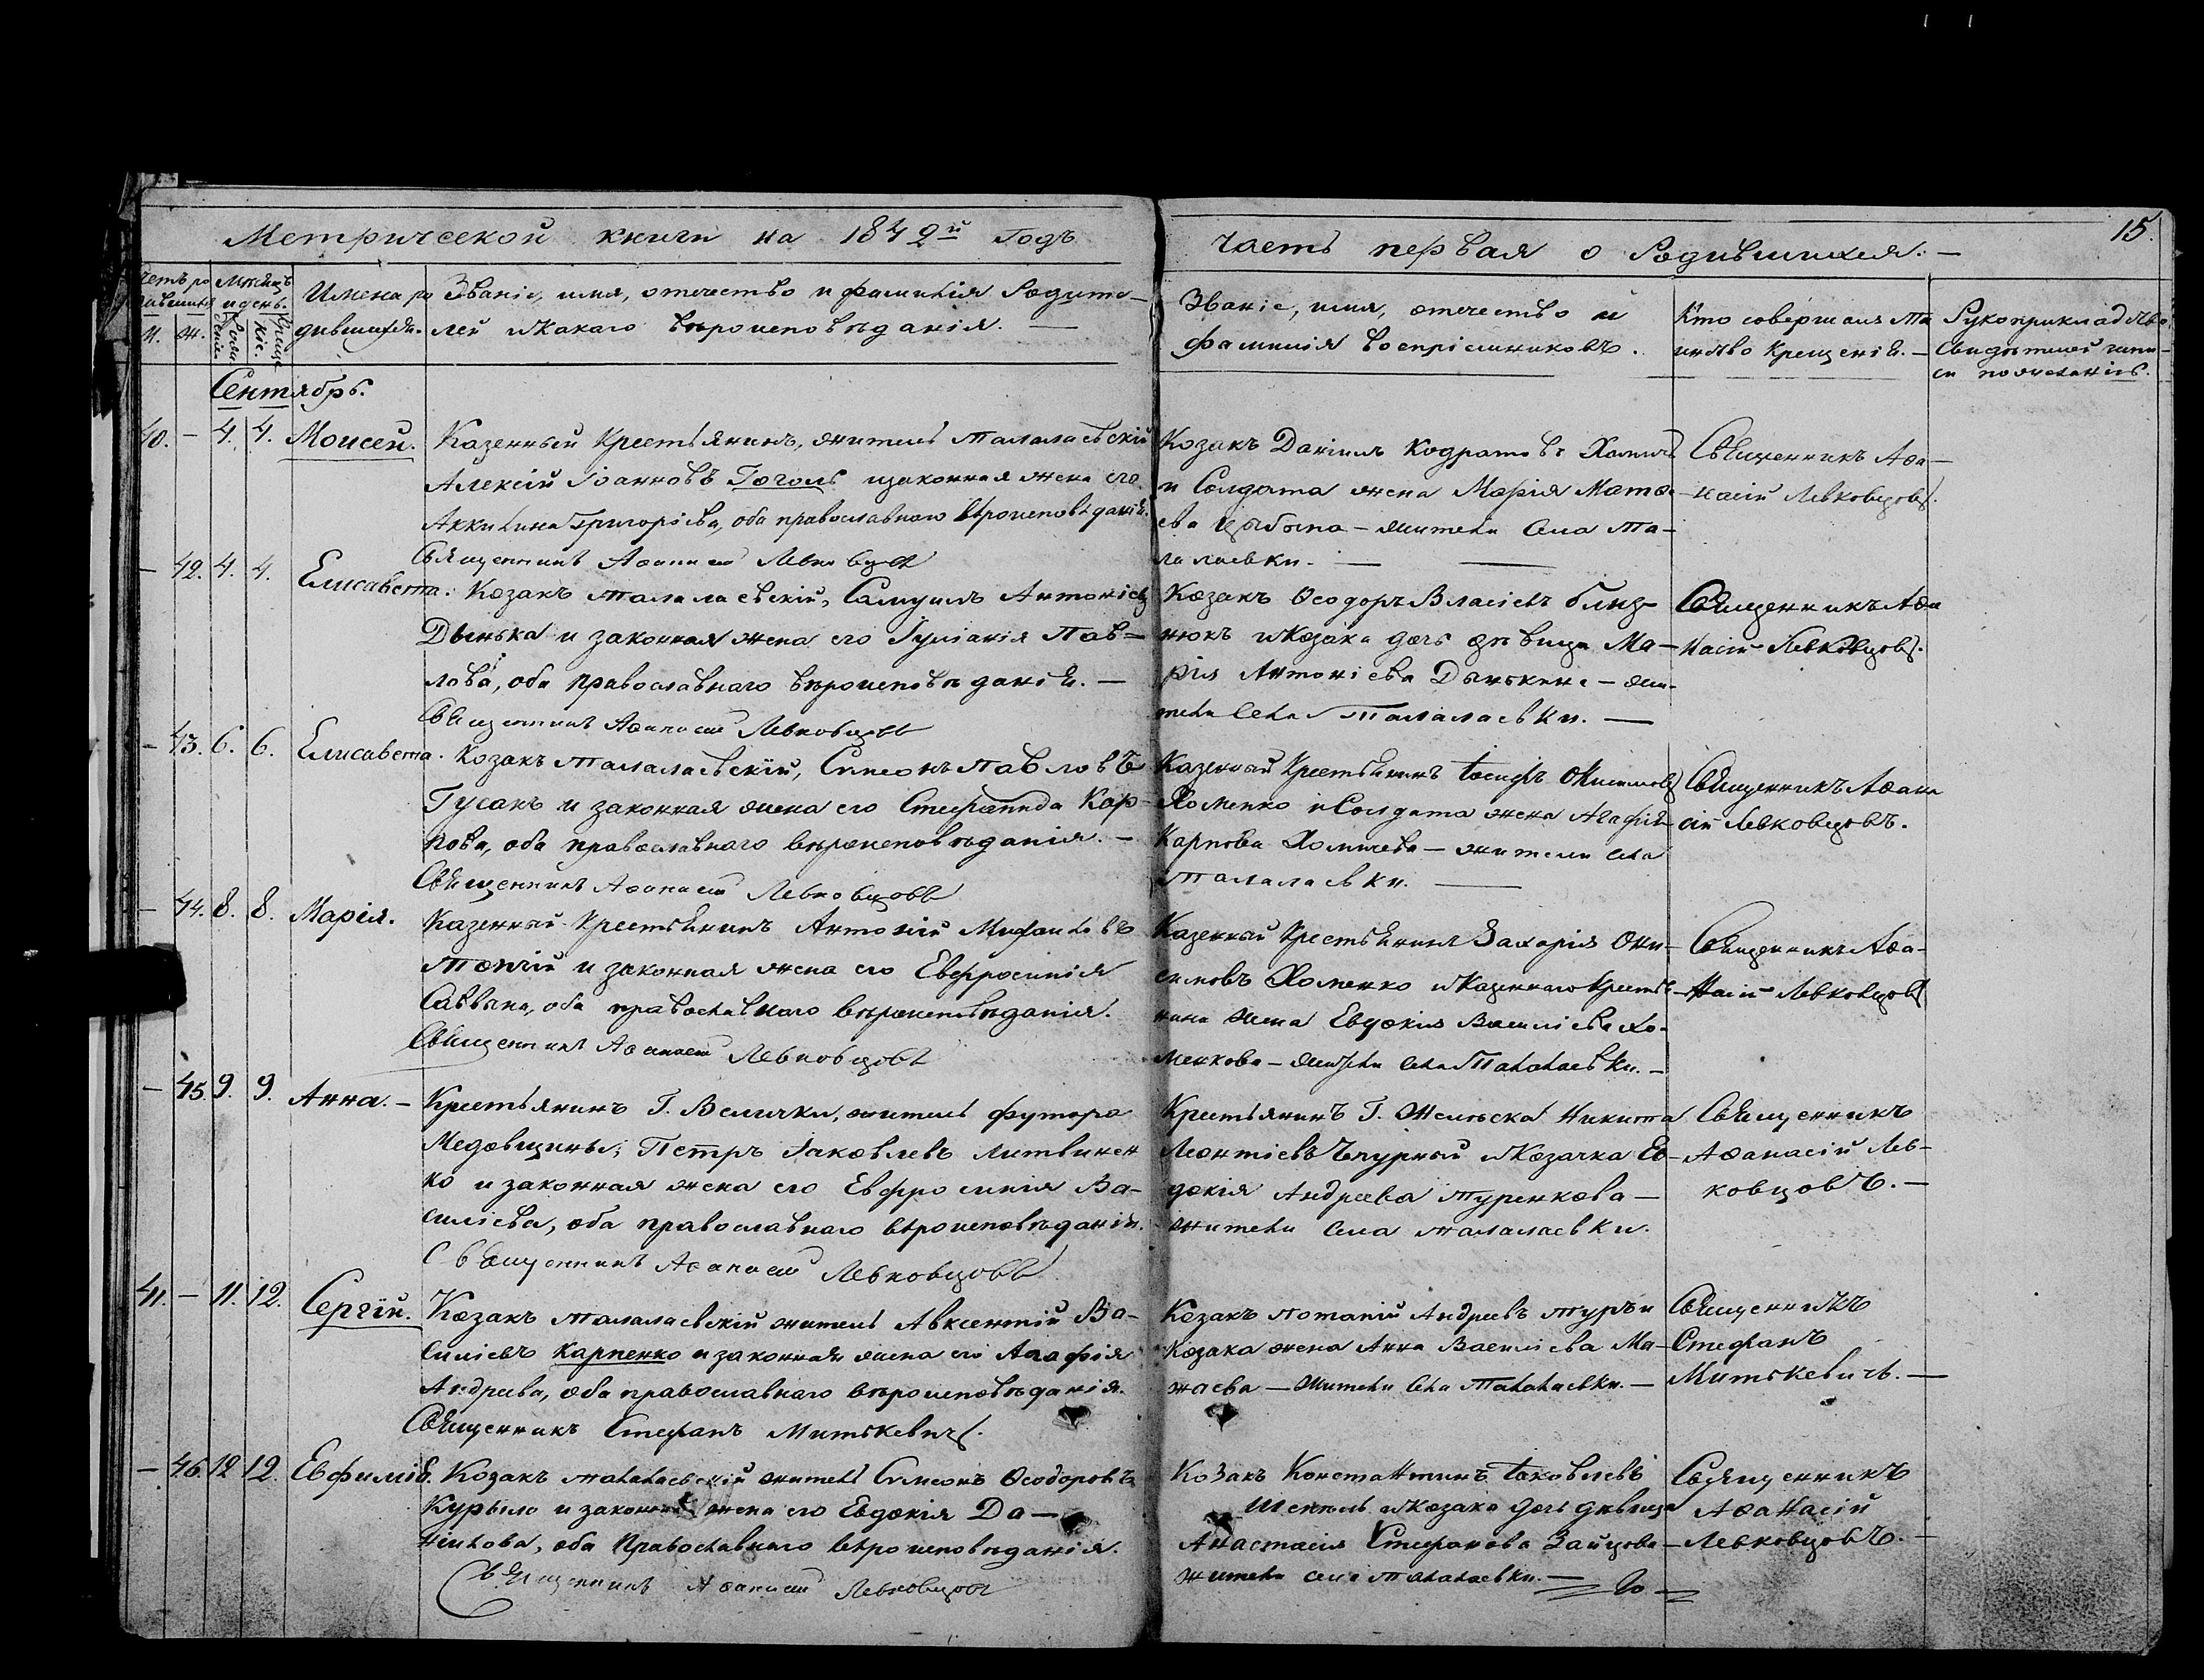 Метрической книги на 1842й годъ
часть первая о Родившихся. —
15.
Счетъ ро
дившихся
Мѣсяцъ
и день.
М. Ж.
Рождения
Крещенія.
Имена ро
дившихся.
Званіе, имя, отечество и фамилія Родите-
лей и какаго вѣроисповѣданія. —
Званіе, имя, отечество и
фамилія воспріемниковъ.
Кто совершалъ та
инство крещенія. —
Рукоприкладство
свидѣтелей записи
по желанію.
Сентябрь.
40. — 4. 4. Моисей.
Казенный крестьянинъ, житель талалаевскій
Алексій Іоанновъ Гоголь и законная жена его
Акилина Григоріева, оба православнаго вѣроисповѣданія.
Священникъ Аѳанасій Левковцовъ
Козакъ Даніилъ Кодратовъ
и Солдата жена Марія Матѳе-
ева — жители села Та-
лалаевки. —
Священникъ Аѳа-
насій Левковцовъ.
— 42. 4. 4. Елисавета.
Козакъ талалаевскій, Самуилъ Антоніевъ
Дынька и законная жена его Іуліанія Пав-
лова, оба православнаго вѣроисповѣданія. —
Священникъ Аѳанасій Левковцовъ
Козакъ Ѳеодоръ Власіевъ Близ-
нюкъ и Козака дочь дѣвица Ма-
рія Антоніева Дынькина — жи-
тели села Талалаевки. —
Священникъ Аѳа
насій Левковцовъ.
— 43. 6. 6. Елисавета.
Козакъ талалаевскій, Симеонъ Павловъ
Гусакъ и законная жена его Стефанида Кар-
пова, оба православнаго вѣроисповѣданія. —
Священникъ Аѳанасій Левковцовъ
Казенный крестьянинъ Іосифъ Онисимовъ
Хоменко и Солдата жена Агафія
Карпова — жители села
Талалаевки. —
Священникъ Аѳана
сій Левковцовъ.
— 44. 8. 8. Марія.
Казенный крестьянинъ Антоній Михаиловъ
и законная жена его Евфросинія
Саввина, оба православнаго вѣроисповѣданія.
Священникъ Аѳанасій Левковцовъ
Казенный крестьянинъ Захарія Они-
симовъ Хоменко и Казеннаго крестья-
нина жена Евдокія Василіева Хо-
менкова — жители села Талалаевки. —
Священникъ Аѳа-
насій Левковцовъ
— 45. 9. 9. Анна. —
Крестьянинъ Г. Велички, житель футора
Медовщины, Петръ Іаковлевъ Литвинен
ко и законная жена его Евфросинія Ва-
силіева, оба православнаго вѣроисповѣданія.
Священникъ Аѳанасій Левковцовъ
Крестьянинъ Г. Никита
Леонтіевъ и Козачка Ев-
докія Андреева Туренкова —
жители села Талалаевки.
Священникъ
Аѳанасій Лев-
ковцовъ. —
41. — 11. 12. Сергій.
Козакъ талалаевскій житель Авксентій Ва-
силіевъ Карпенко и законная жена его Агафія
Андреева, оба православнаго вѣроисповѣданія.
Священникъ Стефанъ Митькевичъ.
Козакъ Потапій Андреевъ Туръ и
Козака жена Анна Василіева Ма-
жаева — жители села Талалаевки. —
Священникъ
Стефанъ
Митькевичъ. —
— 46. 12. 12. Евфимія.
Козакъ талалаевскій житель Симеонъ Ѳеодоровъ
Курыло и законная жена его Евдокія Да-
ніилова, оба Православнаго вѣроисповѣданія.
Священникъ Аѳанасій Левковцовъ
Козакъ Константинъ Іаковлевъ
Шепель и Козака дочь дѣвица
Анастасія Стефанова Зайцова —
жители села Талалаевки. —
Священникъ
Аѳанасій
Левковцовъ. —